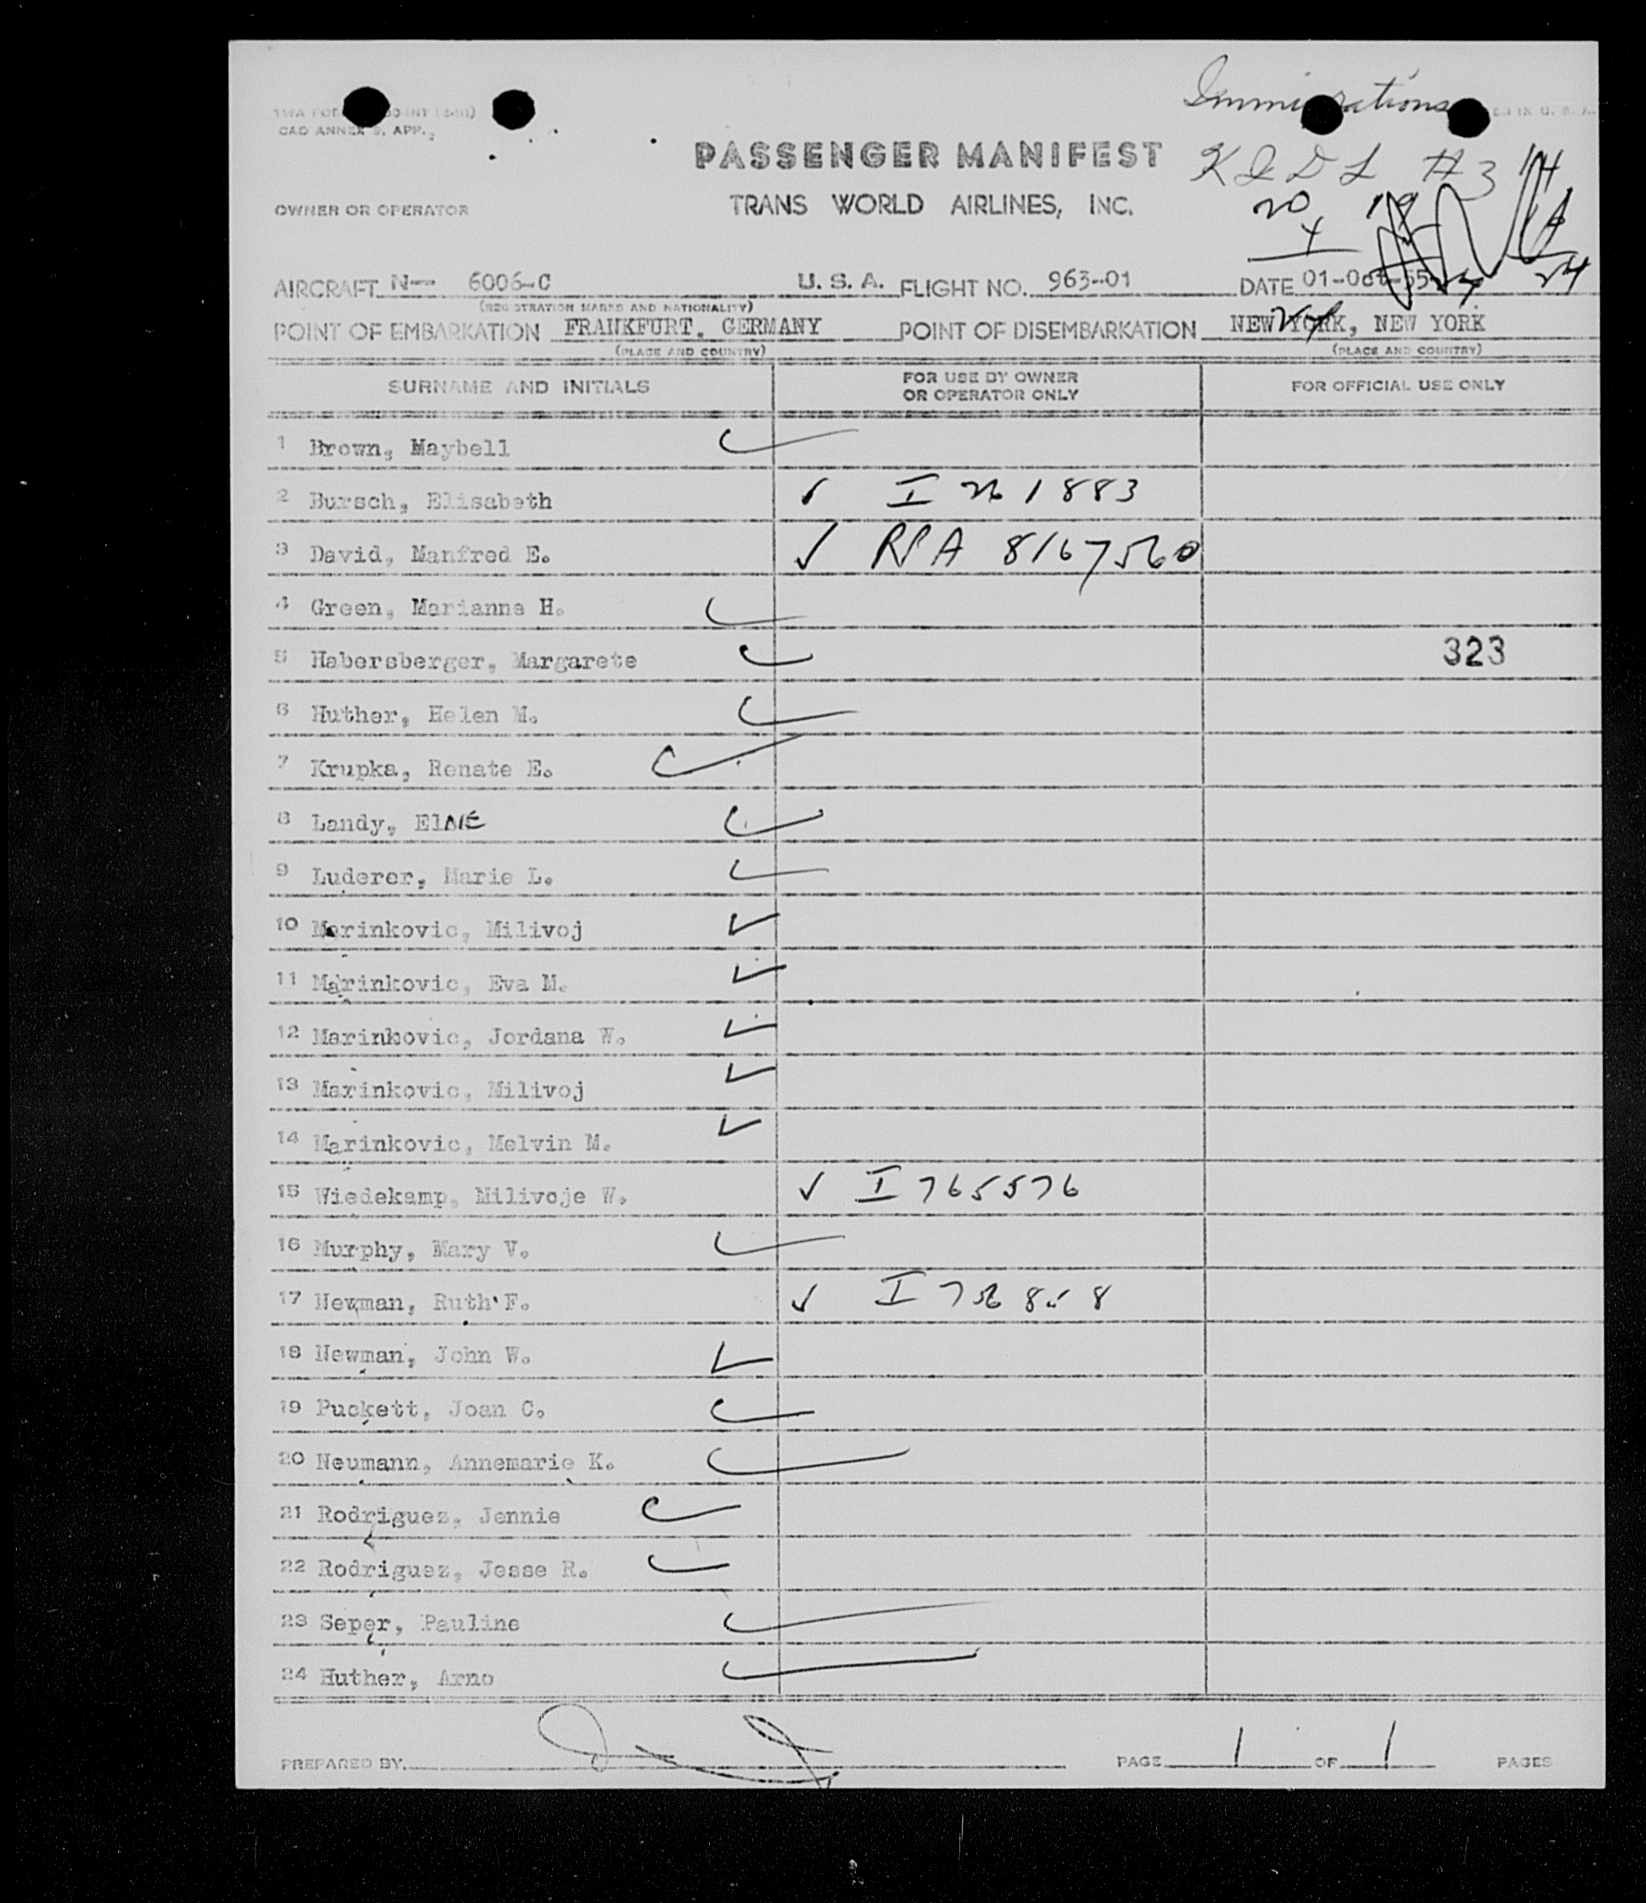 Immigrations
CAO ANNEX 9, APP.
PASSENGER MANIFEST
OWNER OR OPERATOR TRANS WORLD AIRLINES, INC.
AIRCRAFT N-- 6006-C U. S. A. FLIGHT NO. 963-01 DATE 01-Oct-55
(REGISTRATION MARKS AND NATIONALITY)
POINT OF EMBARKATION FRANKFURT, GERMANY POINT OF DISEMBARKATION NEW YORK, NEW YORK
(PLACE AND COUNTRY) (PLACE AND COUNTRY)
SURNAME AND INITIALS FOR USE BY OWNER OR OPERATOR ONLY FOR OFFICIAL USE ONLY
1 Brown, Maybell
2 Bursch, Elisabeth ✓ I 261883
3 David, Manfred E. ✓ 8167560
4 Green, Marianne H.
5 Habersberger, Margarete 323
6 Huther, Helen M.
7 Krupka, Renate E.
8 Landy, ElNE
9 Luderer, Marie L.
10 Marinkovic, Milivoj
11 Marinkovic, Eva M.
12 Marinkovic, Jordana W.
13 Marinkovic, Milivoj
14 Marinkovic, Melvin M.
15 Wiedekamp, Milivoje W. ✓ I 765576
16 Murphy, Mary V.
17 Newman, Ruth F. ✓ I 756858
18 Newman, John W.
19 Puckett, Joan C.
20 Neumann, Annemarie K.
21 Rodriguez, Jennie
22 Rodriguez, Jesse R.
23 Seper, Pauline
24 Huther, Arno
PREPARED BY PAGE 1 OF 1 PAGES